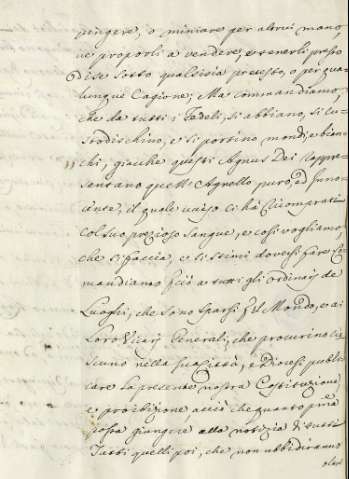 pingere, o miniare per altrui mano,
ne proporli a vendere, e tenerli presso
di se sotto qualsisia pretesto, o per qua
lunque Cagione; Ma commandiamo,
che da tutti i Fedeli, si abbiano, si cu-
stodischino, e si portino mondi, e bien-
chi, giacche questi Agnus Dei rappre-
sentano quell' Agnello puro, ed Inno-
cente, il quale ucciso ci hà
col suo prezioso Sangue, e così vogliamo,
che si faccia, e si stimi doversi fare
mandiamo Perciò a tutti gli ordinarj de
Luoghi, che sono sparsi Pel Mondo, e ai
Loro Vicarj Generali, che procurino cia
scuno nella sua Città, e Diocesi publi
care la presente nostra Costituzione,
e proibizione, acciò che quanto prima
possa giungere alla notizia di tutti
Tutti quelli poi, che non ubbidiranno